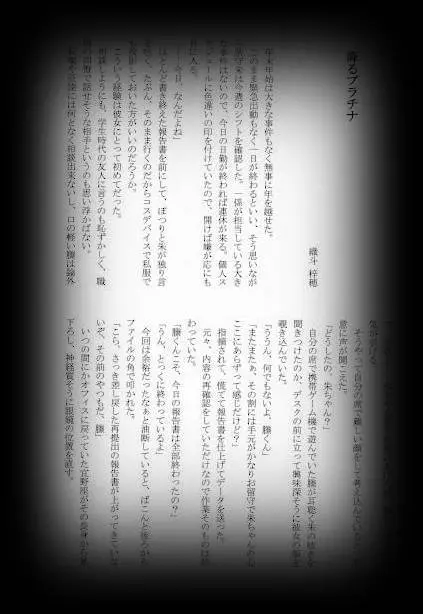 踊るプラチナ
織斗 梓穂
年末年始は大きな事件もなく無事に年を越せた。
このまま緊急出動もなく一日が終わるといい、そう思いなが
守朱は今週のシフトを確認した。一係が担当している大き
な事件はないので、今日の日勤が終われば連休が来る。個人ス
ジュールに色違いの印を付けていたので、開けば嫌が応にも
に入る。
「……今日、なんだよね」
ほとんど書き終えた報告書を前にして、ぽつりと朱が独り言
く。たぶん、そのまま行くのだからコスデバイスで私服で
投影しておいた方がいいのだろうか。
こういう経験は彼女にとって初めてだった。
相談しようにも、学生時代の友人に言うのも恥ずかしく、職
の同僚で話せそうな相手というのも思い浮かばない。
や志恩には何となく相談出来ないし、口の軽い縢は論外
そうやって自分の席で難しい顔をして考え込んでいると、
意に声が聞こえた。
「どうしたの、朱ちゃん？」
自分の席で携帯ゲーム機で遊んでいた縢が耳聡く朱の呟きを
聞きつけたのか、デスクの前に立って興味深そうに彼女の事を
覗き込んでいた。
「ううん、何でもないよ、縢くん」
「またまたぁ、その割には手元がかなりお留守で朱ちゃんの心
ここにあらずって感じだけど？」
指摘されて、慌てて報告書を仕上げてデータを送った。
元々、内容の再確認をしていただけなので作業そのものは終
わっていた。
「縢くんこそ、今日の報告書は全部終わったの？」
「うん、とっくに終わっているよ」
今回は余裕だったなぁと油断していると、ぱこんと後ろから
ファイルの角で叩かれた。
「こら、さっき差し戻した再提出の報告書が上がってきていな
いぞ、その前のやつもだ、縢」
いつの間にかオフィスに戻っていた宜野座がその長身から見
下ろし、神経質そうに眼鏡の位置を直す。